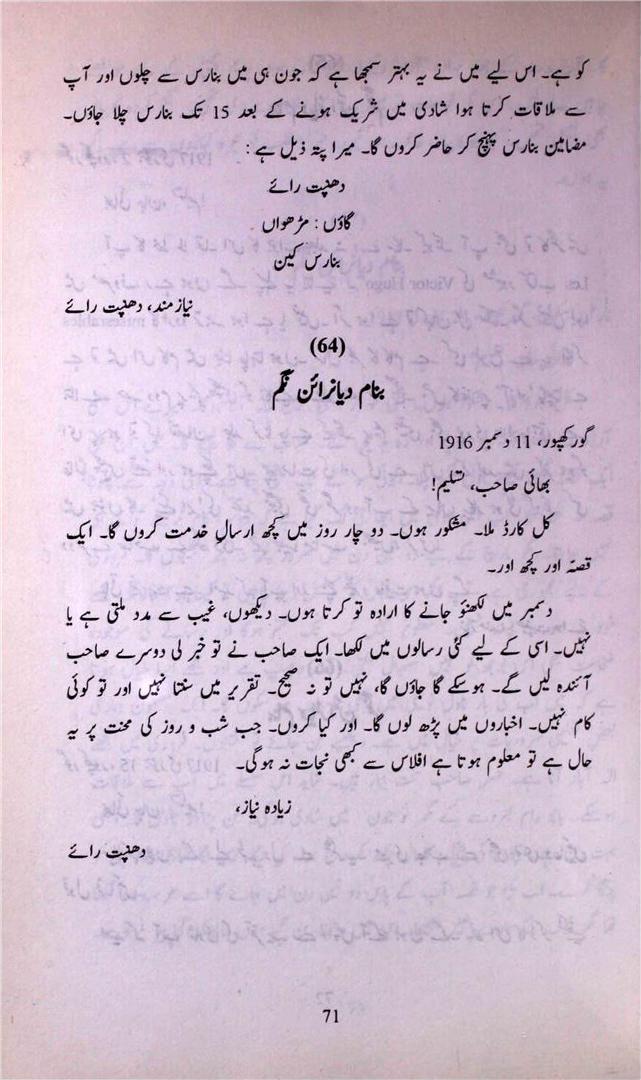 کو ہے۔ اس لیے میں نے یہ بہتر سمجھا ہے کہ جون ہی میں بنارس سے چلوں اور آپ
سے ملاقات کرتا ہوا شادی میں شریک ہونے کے بعد 15 تک بنارس چلا جاؤں۔
مضامین بنارس پہنچ کر حاضر کروں گا۔ میرا پتہ ذیل ہے :
دھنپت رائے
گاؤں : مڑھواں
بنارس کین
نیازمند، دھنپت رائے
(64)
بنام دیانرائن نگم
گورکھپور، 11 دسمبر 1916
بھائی صاحب، تسلیم!
کل کارڈ ملا۔ مشکور ہوں۔ دو چار روز میں کچھ ارسالِ خدمت کروں گا۔ ایک
قصّہ اور کچھ اور۔
دسمبر میں لکھنؤ جانے کا ارادہ تو کرتا ہوں۔ دیکھوں، غیب سے مدد ملتی ہے یا
نہیں۔ اسی کے لیے کئی رسالوں میں لکھا۔ ایک صاحب نے تو خبر لی دوسرے صاحب
آئندہ لیں گے۔ ہوسکے گا جاؤں گا، نہیں تو نہ صحیح۔ تقریر میں سنتا نہیں اور تو کوئی
کام نہیں۔ اخباروں میں پڑھ لوں گا۔ اور کیا کروں۔ جب شب و روز کی محنت پر یہ
حال ہے تو معلوم ہوتا ہے افلاس سے کبھی نجات نہ ہوگی۔
زیادہ نیاز،
دھنپت رائے
71